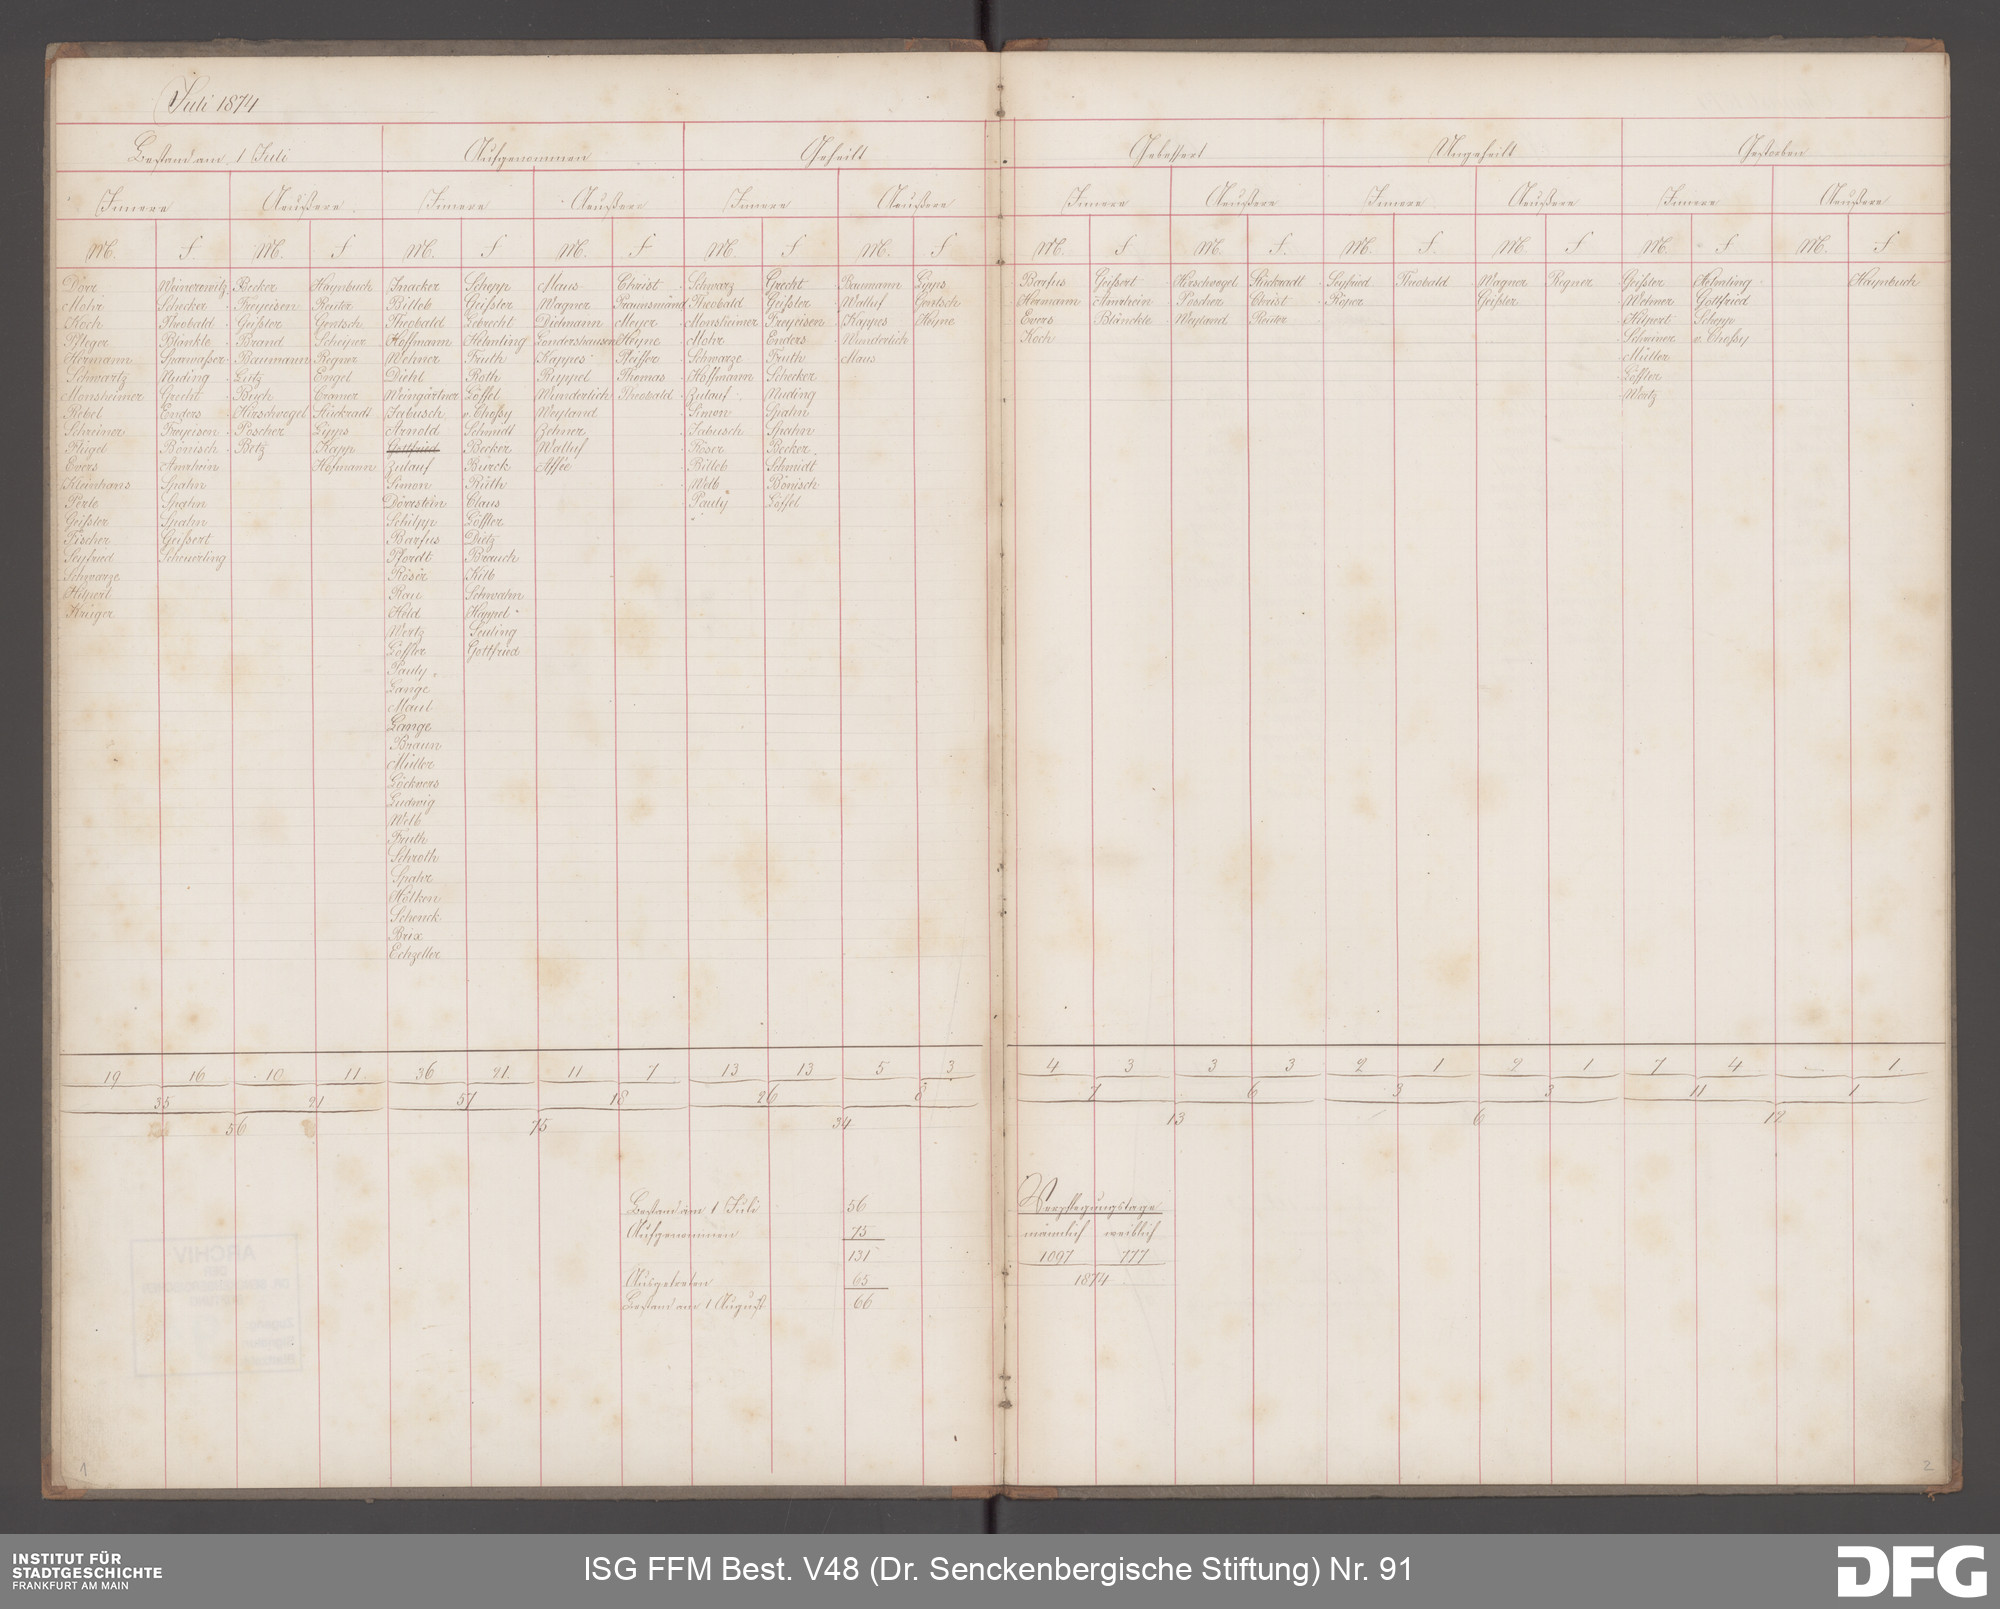 Juli 1874
Bestand am 1 Juli Aufgenommen Geheilt Gebessert Ungeheilt Gestorben
Innere Aeußere Innere Aeußere Innere Aeußere Innere Aeußere Innere Aeußere Innere Aeußere
M. f. M. f M. f M. f M. f M. f M. f M. f. M. f. M. f M. f M. f
Dörr Becker Haynbuch Knacker Schepp Maus Christ Schwarz Grecht Baumann Lipps Barfus Geissert Hirschvogel Stückradt Seyfried Theobald Wagner Rigner Geißler Helmling Haynbuch
Mohr Schecker Freyeisen Reuter Billeb Geißler Wagner Praumsmänd Theobald Geißler Walluf Gentsch Hörmann Amrhein Poscher Christ Röper Geißler Wehner Gottfried
Koch Theobald Geißler Gentsch Theobald Lebrecht Dielmann Meyer Monsheimer Freyeisen Kappes Heyne Evers Blänckle Weyland Reuter Hilpert Schepp
Pfleger Blänkle Brand Scheyer Hoffmann Helmling Gondershausen Heyne Mohr Enders Wunderlich Koch Schreiner v. Choßy
Hörmann Sparwasser Baumann Regner Wehner Fruth Kappes Pfeiffer Schwarze Fruth Maus Müller
Schwartz Nuding Lutz Engel Diehl Roth Ruppel Thomas Hoffmann Schecker Löffler
Monsheimer Grecht Buch Cramer Weingärtner Löffel Wunderlich Theobald Zulauf Nuding Wertz
Rebel Enders Hirschvogel Stückradt Jabusch v. Choßy Weyland Simon Spahn
Schreiner Freyeisen Poscher Lipps Arnold Schmidt Zehner Jabusch Spahn
Flügel Bönisch Betz Kapp Gottfried Becker Walluf Röser Becker
Evers Amrhein Hofmann Zulauf Burck Affée Billeb Schmidt
Kleinhans Spahn Simon Rüth Welb Bönisch
Perle Spahn Dörrstein Claus Pauly Löffel
Geißler Spahn Schilpp Löffler
Fischer Geißert Barfus Dietz
Seyfried Scheuerling Pfordt Brauch
Schwarze Röser Kilb
Hilpert Rau Schwahn
Krüger Held Happel
Wertz Seuling
Löffler Gottfried
Pauly
Lange
Maul
Lange
Braun
Müller
Ludwig
Welb
Fruth
Schroth
Spater
Hölken
Schenck
Brix
Echzeller
19 16 10 11 36 21 11 7 13 13 5 3 4 3 3 3 2 1 2 1 7 4 — 1
35 21 57 18 26 8 7 6 3 3 11 1
56 75 34 13 6 12
Bestand am 1 Juli 56
Aufgenommen 75
131
Ausgetreten 65
Bestand am 1 August 66
Verpflegungstage
männlich weiblich
1097 777
1874
1
2
INSTITUT FÜR
STADTGESCHICHTE
FRANKFURT AM MAIN
ISG FFM Best. V48 (Dr. Senckenbergische Stiftung) Nr. 91
DFG